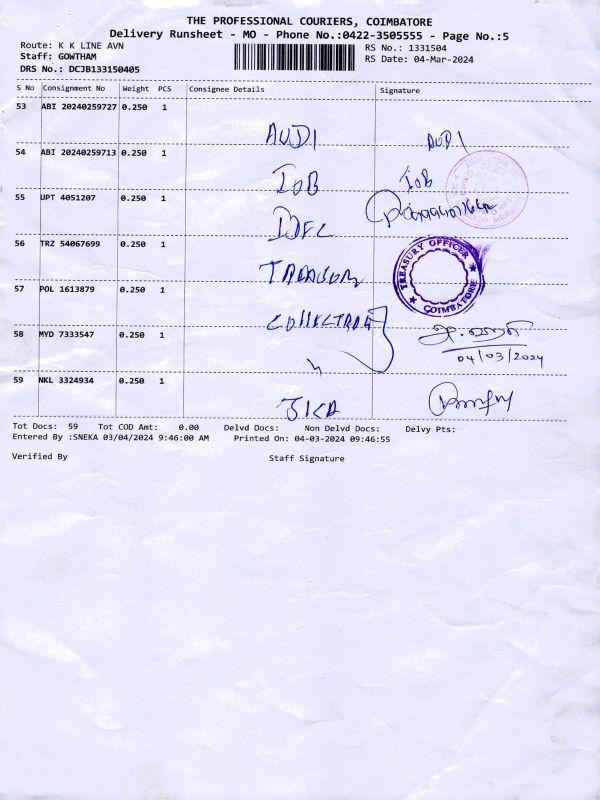 THE PROFESSIONAL COURIERS, COIMBATORE
Delivery Runsheet - MO - Phone No.:0422-3505555 - Page No.:5
Route: K K LINE AVN
RS No.: 1331504
Staff: GOWTHAM
RS Date: 04-Mar-2024
DRS No.: DCJB133150405
S No Consignment No Weight PCS Consignee Details Signature
53 ABI 20240259727 0.250 1
AUDI AUDI
54 ABI 20240259713 0.250 1
IOB IOB
55 UPT 4051207 0.250 1
56 TRZ 54067699 0.250 1
TREASURY OFFICER
COIMBATORE
57 POL 1613879 0.250 1
58 MYD 7333547 0.250 1
04/03/2024
59 NKL 3324934 0.250 1
Tot Docs: 59 Tot COD Amt: 0.00 Delvd Docs: Non Delvd Docs: Delvy Pts:
Entered By :SNEKA 03/04/2024 9:46:00 AM Printed On: 04-03-2024 09:46:55
Verified By Staff Signature